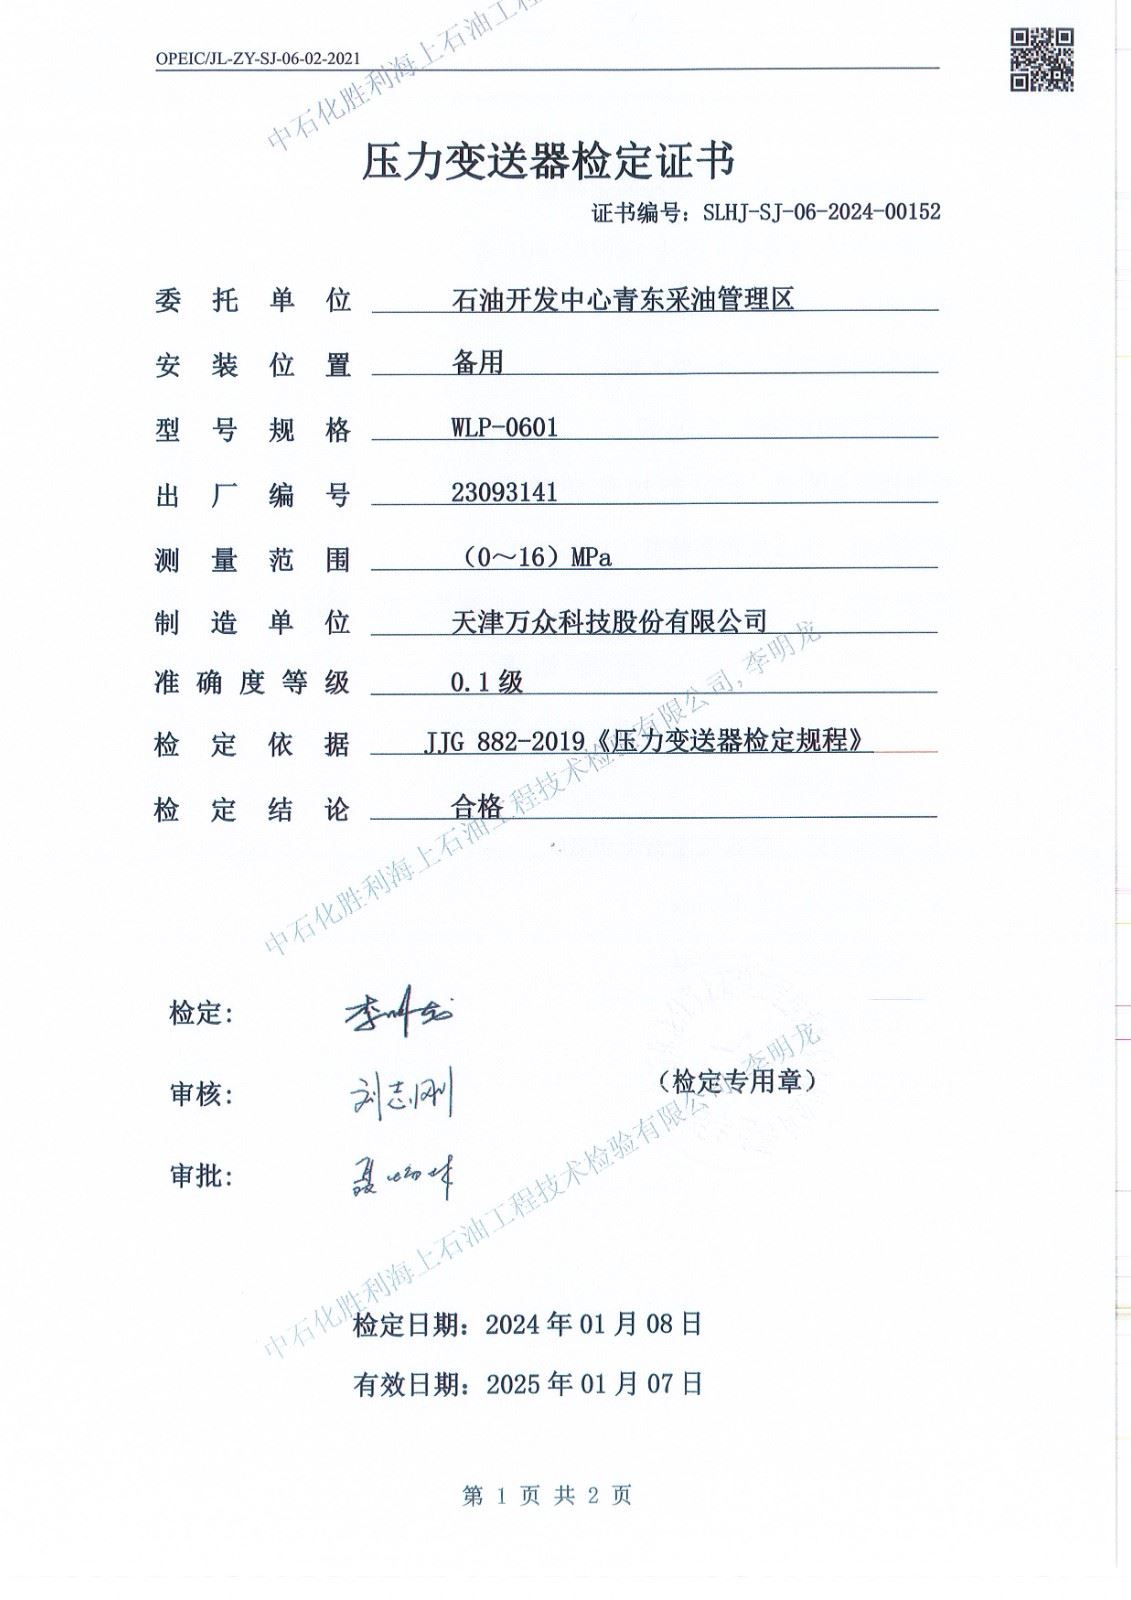 OPEIC/JL-ZY-SJ-06-02-2021
中石化胜利海上石油工程
压力变送器检定证书
证书编号：SLHJ-SJ-06-2024-00152
委托单位 石油开发中心青东采油管理区
安装位置 备用
型号规格 WLP-0601
出厂编号 23093141
测量范围 （0～16）MPa
制造单位 天津万众科技股份有限公司
准确度等级 0.1级
检定依据 JJG 882-2019《压力变送器检定规程》
检定结论 合格
中石化胜利海上石油工程技术检验有限公司,李明龙
检定： 李明龙
审核： 刘志刚
（检定专用章）
审批：
中石化胜利海上石油工程技术检验有限公司,李明龙
检定日期：2024年01月08日
有效日期：2025年01月07日
第 1 页 共 2 页